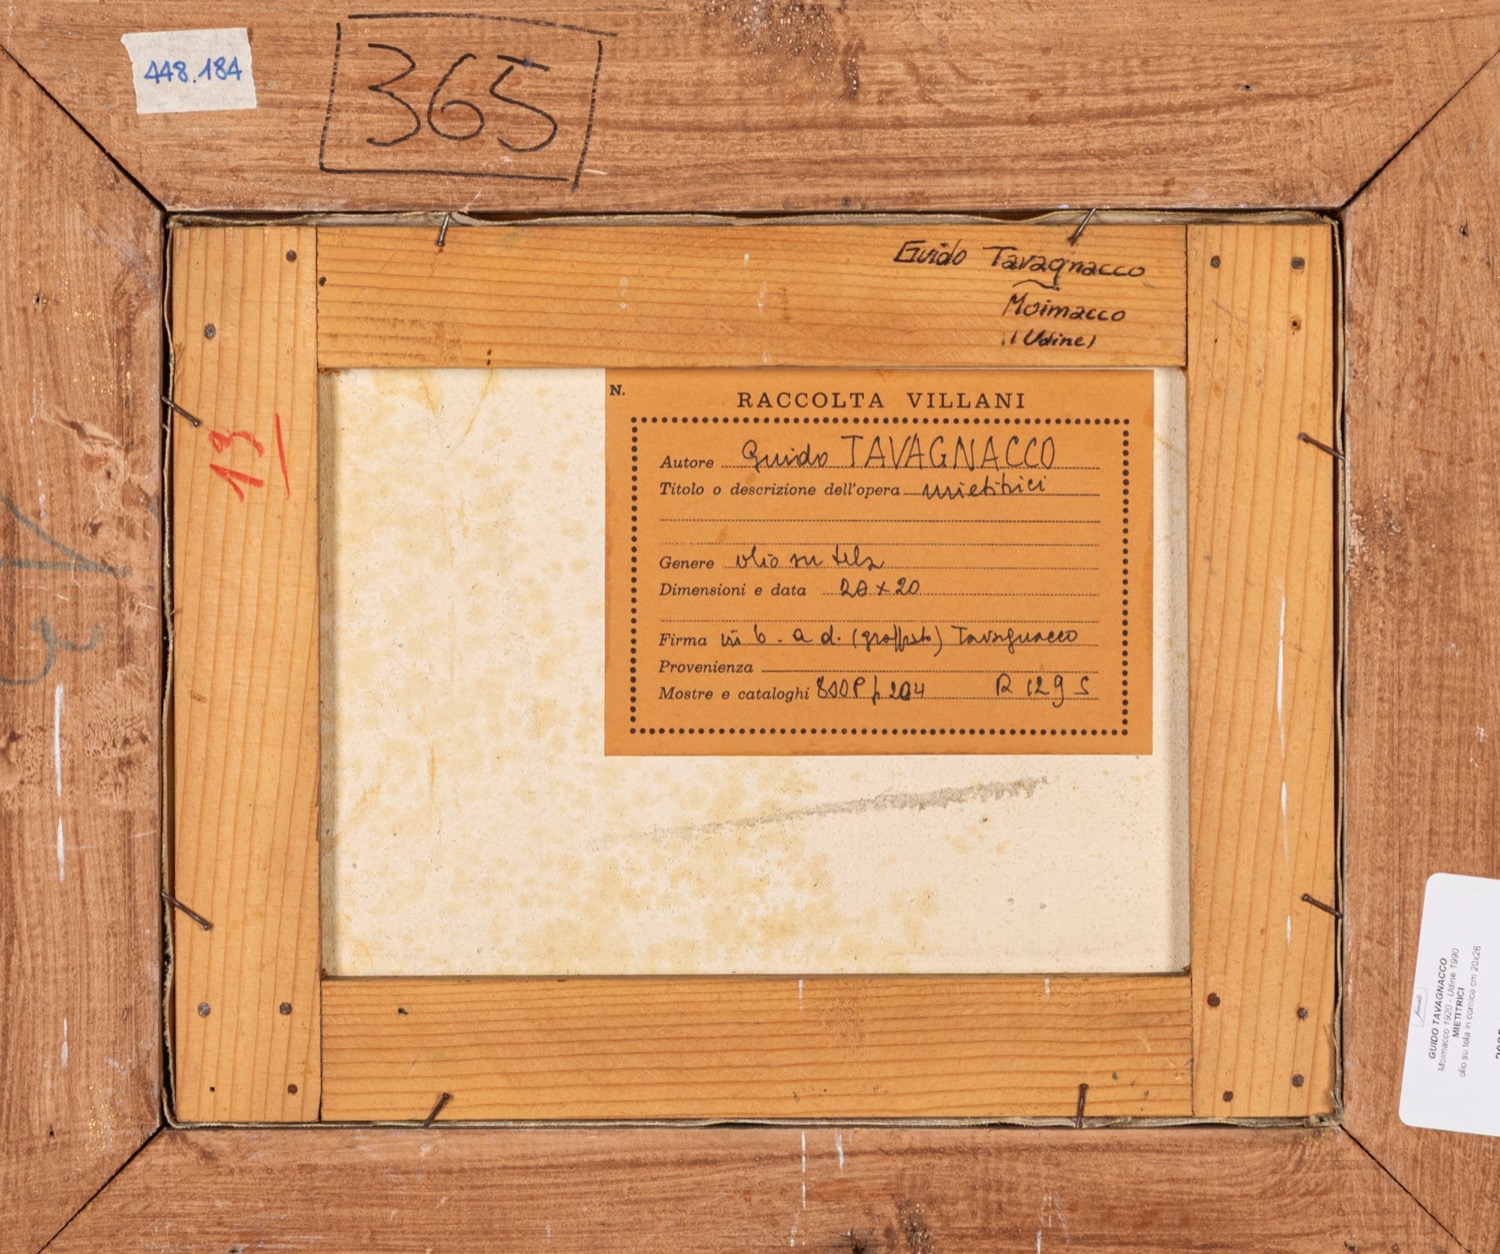 448.184
365
Guido Tavagnacco
Moimacco
(Udine)
13
N.
RACCOLTA VILLANI
Autore Guido TAVAGNACCO
Titolo o descrizione dell'opera mietitrici
Genere olio su tela
Dimensioni e data 20 x 20
Firma in b. a d. (graffito) Tavagnacco
Provenienza
Mostre e cataloghi 204 R 129 S
GUIDO TAVAGNACCO
Moimacco 1920 - Udine 1990
MIETITRICI
olio su tela in cornice cm 20x26